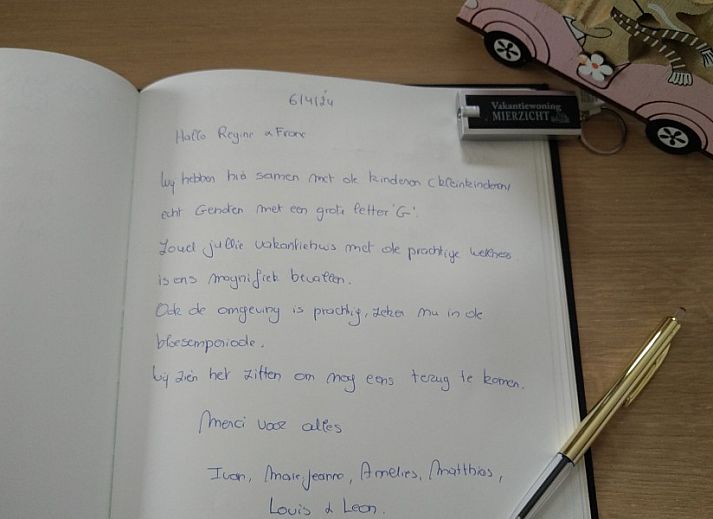 6/4/24
Hallo Regine & Franc
Wij hebben hier samen met de kinderen (kleinkinderen)
echt Genoten met een grote letter 'G'.
Zowel jullie vakantiehuis met de prachtige wellness
is ons magnifiek bevallen.
Ook de omgeving is prachtig, zeker nu in de
bloesemperiode.
Wij zien het zitten om nog eens terug te komen.
Merci voor alles
Ivan, Marie Jeanne, Annelies, Matthias,
Louis & Leon.
Vakantiewoning
MIERZICHT